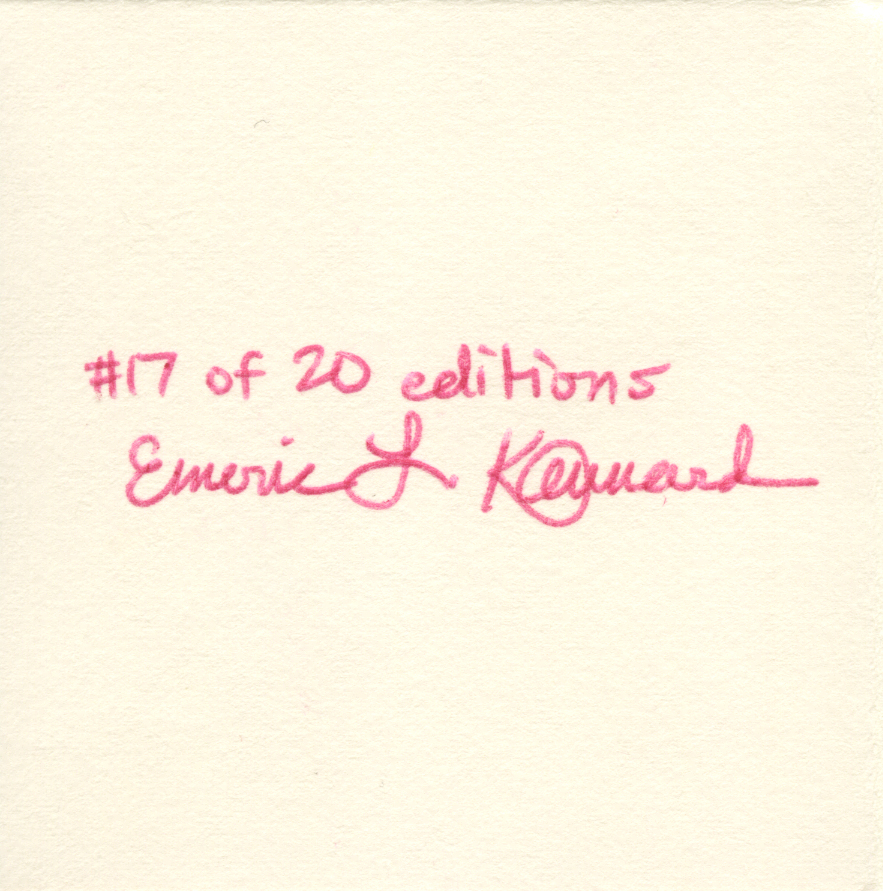 #17 of 20 editions
Emeric L. Kennard